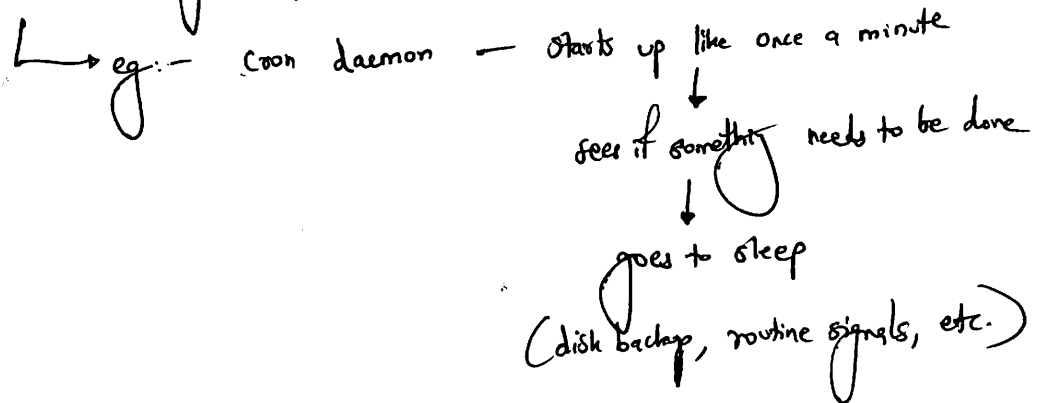 eg:- Cron daemon — starts up like once a minute
↓
sees if somethig needs to be done
↓
goes to sleep
(disk backup, routine signals, etc.)